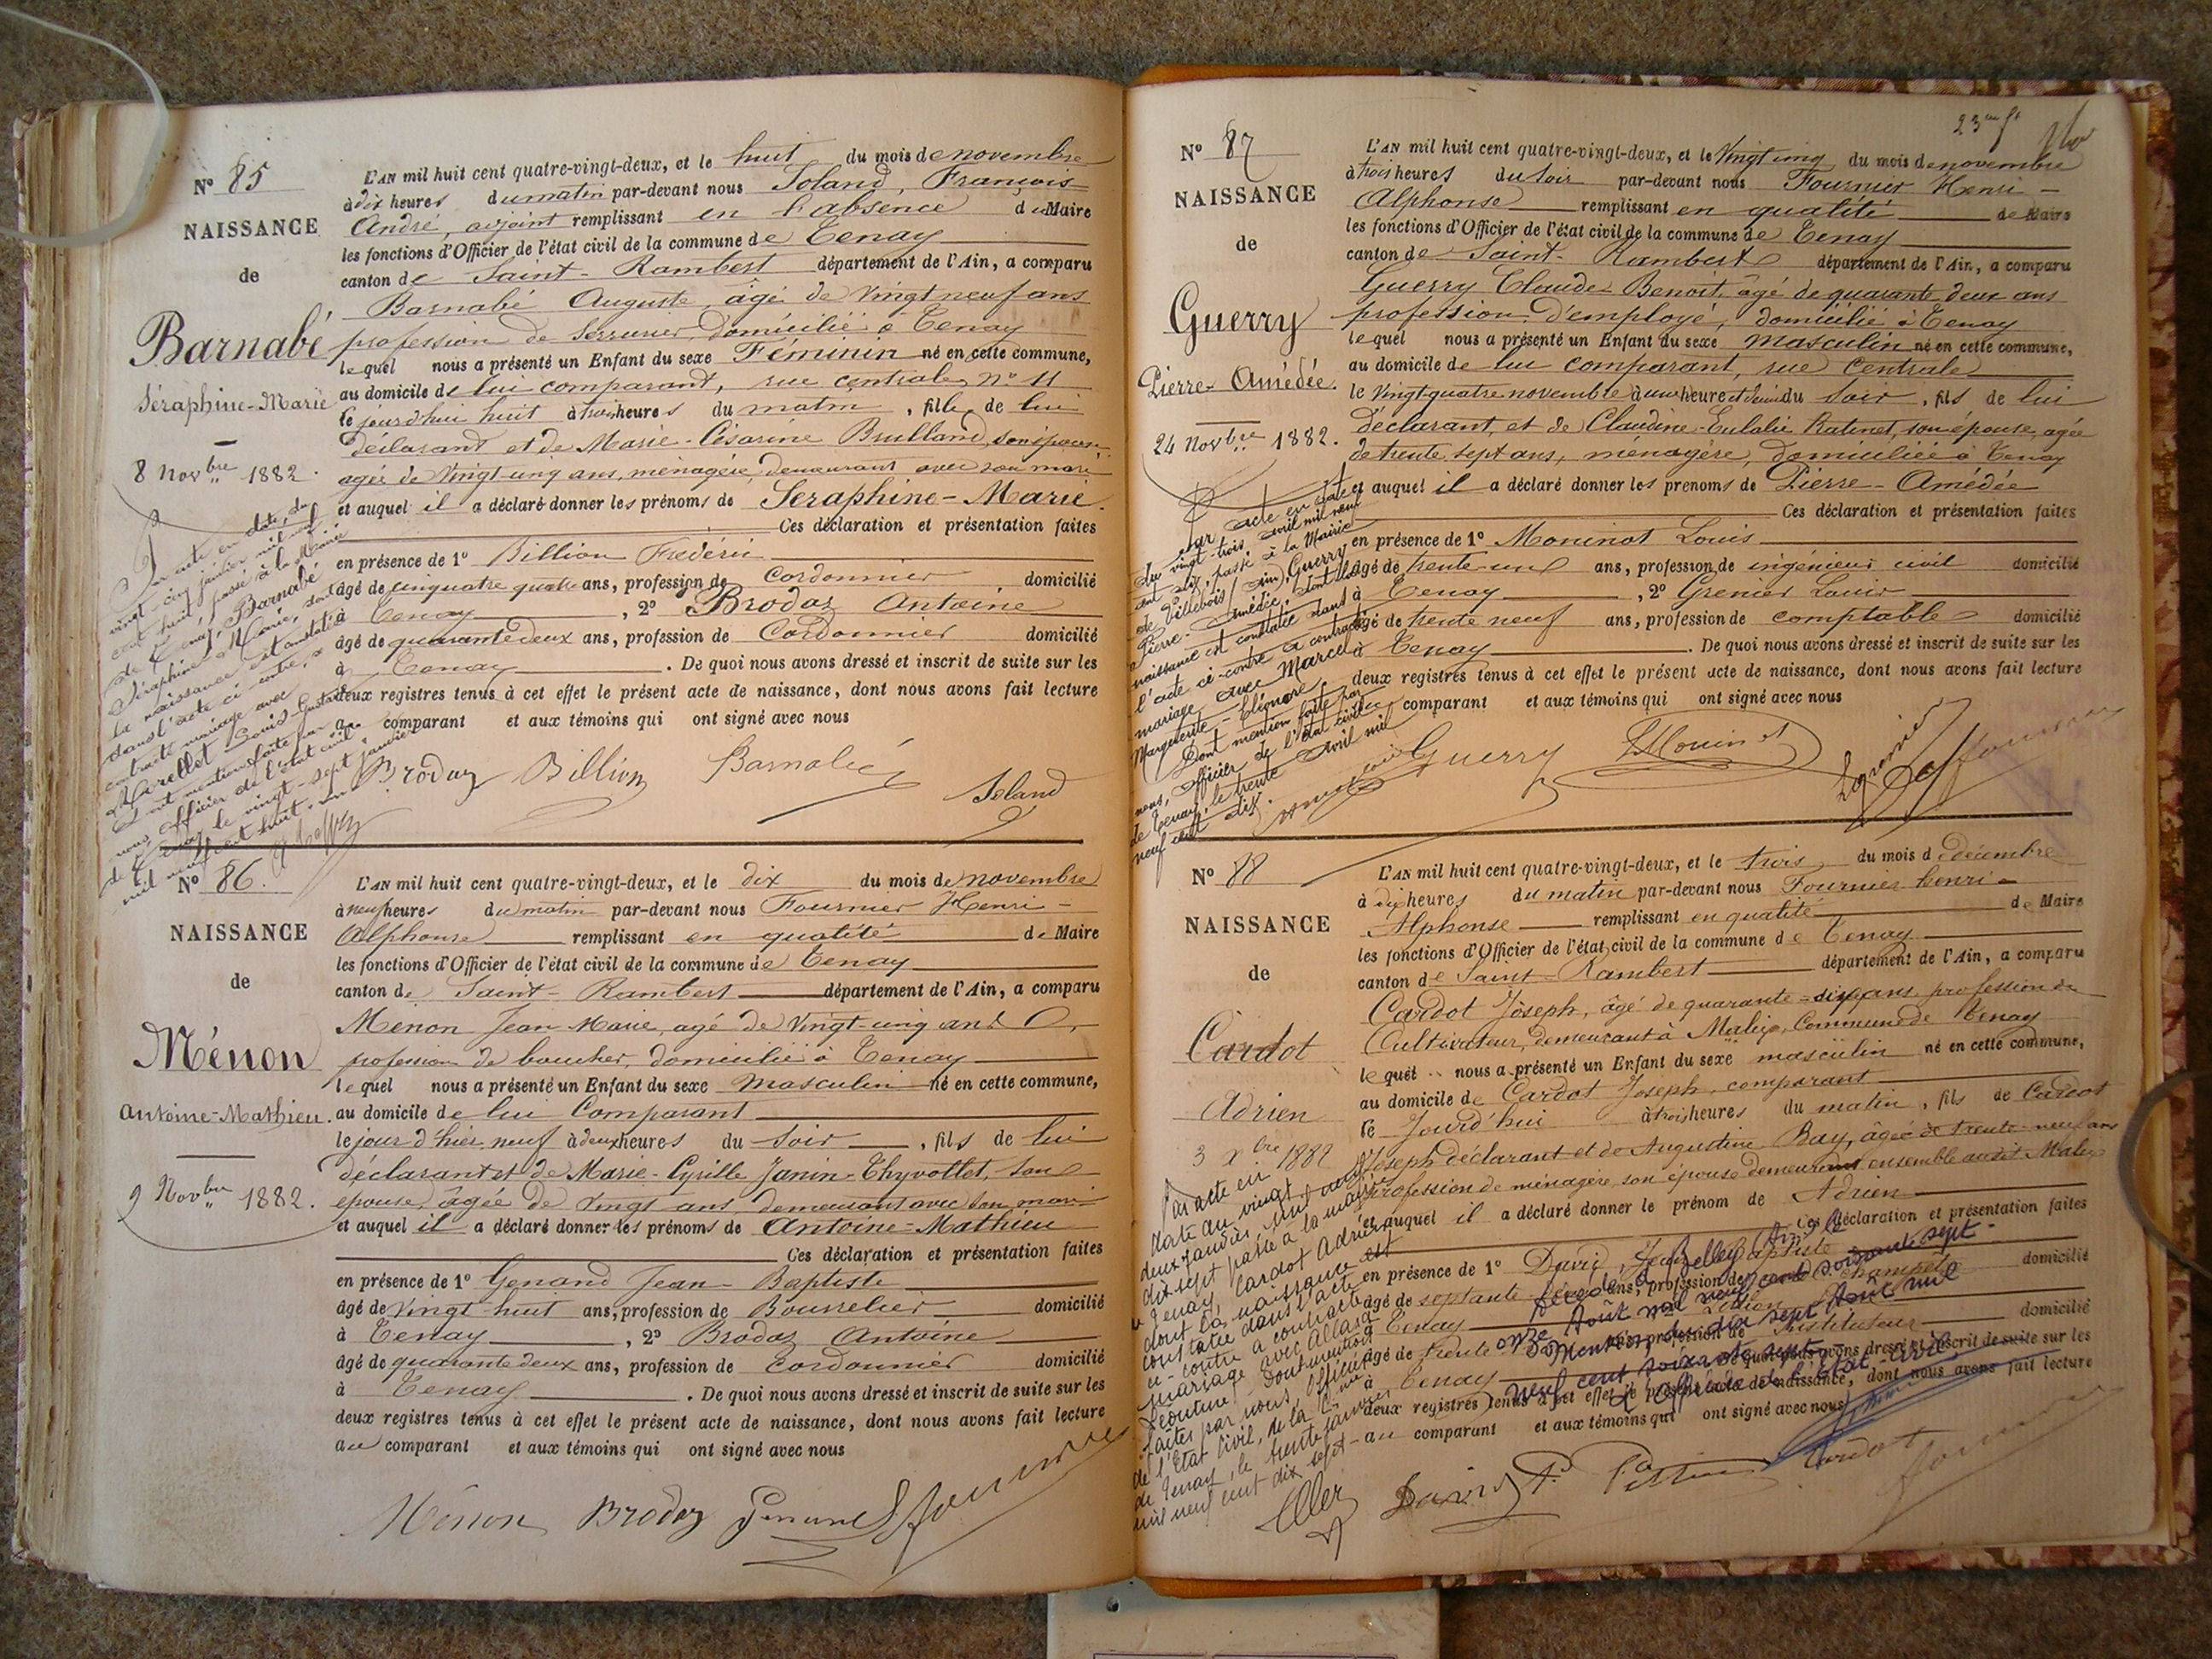 N° 85
NAISSANCE
de
Barnabé
Séraphine-Marie
8 Novbre 1882.
L'AN mil huit cent quatre-vingt-deux, et le huit du mois de novembre
à dix heures du matin par-devant nous Soland, François
André, adjoint remplissant en l'absence de Maire
les fonctions d'Officier de l'état civil de la commune de Tenay
canton de Saint-Rambert département de l'Ain, a comparu
Barnabé Auguste, âgé de vingt neuf ans
profession de Serrurier, domicilié à Tenay
lequel nous a présenté un Enfant du sexe Féminin né en cette commune,
au domicile de lui comparant, rue centrale, n° 11
le jourd'hui huit à trois heures du matin, fille de lui
déclarant et de Marie-Césarine Brulland, son épouse,
agée de vingt-unq ans, ménagère, demeurant avec son mari
et auquel il a déclaré donner les prénoms de Seraphine-Marie.
Ces déclaration et présentation faites
en présence de 1° Billion Frédéric
âgé de cinquatre quatre ans, profession de Cordonnier domicilié
à Tenay, 2° Brodaz Antoine
âgé de quarante deux ans, profession de Cordonnier domicilié
à Tenay. De quoi nous avons dressé et inscrit de suite sur les
deux registres tenus à cet effet le présent acte de naissance, dont nous avons fait lecture
au comparant et aux témoins qui ont signé avec nous
Par acte en date, du
vingt-cinq janvier mil neuf
cent huit, passé à la Mairie
de Tenay, Barnabé
Séraphine-Marie, dont
la naissance est constatée
dans l'acte ci-contre, a
contracté mariage avec
Marellet Louis Gustave
Dont mention faite par
nous, officier de l'état civil
de Tenay le vingt-sept janvier
mil neuf cent huit.
Brodaz Billion Barnabé Soland
N° 86.
NAISSANCE
de
Ménon
Antoine-Mathieu.
9 Novbre 1882.
L'AN mil huit cent quatre-vingt-deux, et le dix du mois de novembre
à neuf heures du matin par-devant nous Fournier Henri-
Alphonse remplissant en qualité de Maire
les fonctions d'Officier de l'état civil de la commune de Tenay
canton de Saint-Rambert département de l'Ain, a comparu
Menon Jean Marie, agé de Vingt-cinq ans
profession de boucher, domicilié à Tenay
lequel nous a présenté un Enfant du sexe Masculin né en cette commune,
au domicile de lui Comparant
le jour d'hier neuf à deux heures du Soir, fils de lui
déclarant et de Marie-Cyrille Janin-Thyvollet, son
epouse, âgée de vingt ans, demeurant avec son mari
et auquel il a déclaré donner les prénoms de Antoine-Mathieu
Ces déclaration et présentation faites
en présence de 1° Genand Jean-Baptiste
âgé de Vingt-huit ans, profession de Bourrelier domicilié
à Tenay, 2° Brodaz Antoine
âgé de quarante deux ans, profession de Cordonnier domicilié
à Tenay. De quoi nous avons dressé et inscrit de suite sur les
deux registres tenus à cet effet le présent acte de naissance, dont nous avons fait lecture
au comparant et aux témoins qui ont signé avec nous
Ménon Brodaz Genand Fournier
23me ft
N° 87
NAISSANCE
de
Guerry
Pierre-Amédée.
24 Novbre 1882.
L'AN mil huit cent quatre-vingt-deux, et le Vingt cinq du mois de novembre
à trois heures du soir par-devant nous Fournier Henri-
Alphonse remplissant en qualité de Maire
les fonctions d'Officier de l'état civil de la commune de Tenay
canton de Saint-Rambert département de l'Ain, a comparu
Guerry Claude Benoit, âgé de quarante deux ans
profession d'employé, domicilié à Tenay
lequel nous a présenté un Enfant du sexe masculin né en cette commune,
au domicile de lui comparant, rue Centrale
le Vingt-quatre novembre à une heure et demie du Soir, fils de lui
déclarant, et de Claudine-Eulalie Ratinet, son épouse, agée
de trente sept ans, ménagère, domiciliée à Tenay
et auquel il a déclaré donner les prenoms de Pierre-Amédée
Ces déclaration et présentation faites
en présence de 1° Moninot Louis
âgé de trente-un ans, profession de ingénieur civil domicilié
à Tenay, 2° Grenier Louis
âgé de trente neuf ans, profession de comptable domicilié
à Tenay. De quoi nous avons dressé et inscrit de suite sur les
deux registres tenus à cet effet le présent acte de naissance, dont nous avons fait lecture
comparant et aux témoins qui ont signé avec nous
Par acte en date
du vingt-trois avril mil neuf
cent dix, passé à la Mairie
de Villebois (Ain), Guerry
Pierre-Amédée, dont la
naissance est constatée dans
l'acte ci-contre a contracté
mariage avec Marcel
Marguerite-Eléonore.
Dont mention faite par
nous, officier de l'état civil
de Tenay, le trente avril mil
neuf cent dix.
Guerry LMoninot LGrenier Fournier
N° 88
NAISSANCE
de
Cardot
Adrien
3 Xbre 1882
L'AN mil huit cent quatre-vingt-deux, et le trois du mois de décembre
à dix heures du matin par-devant nous Fournier henri-
Alphonse remplissant en qualité de Maire
les fonctions d'Officier de l'état civil de la commune de Tenay
canton de Saint-Rambert département de l'Ain, a comparu
Cardot Joseph, âgé de quarante-six ans profession de
Cultivateur, demeurant à Malix, Commune de Tenay
lequel nous a présenté un Enfant du sexe masculin né en cette commune,
au domicile de Cardot Joseph, comparant
le Jourd'hui à trois heures du matin, fils de Cardot
Joseph déclarant et de Augustine Bay, âgée de trente-neuf ans
profession de ménagère, son épouse demeurant ensemble audit Malix
et auquel il a déclaré donner le prénom de Adrien
Ces déclaration et présentation faites
en présence de 1° David, Jean Baptiste
âgé de septante ans, profession de champêtre domicilié
à Tenay
âgé de trente ans, profession de Instituteur domicilié
à Tenay De quoi nous avons dressé et inscrit de suite sur les
deux registres tenus à cet effet le présent acte de naissance, dont nous avons fait lecture
au comparant et aux témoins qui ont signé avec nous
Décédé à Belley (Ain) le
onze Août mil neuf cent soixante sept.
Mention du dix sept Août mil
neuf cent soixante sept
L'Officier de l'état-civil,
Par acte en
date du vingt neuf
janvier mil neuf cent
dix sept passé à la mairie
de Tenay, Cardot Adrien
dont la naissance est
constatée dans l'acte
ci-contre a contracté
mariage avec Allard
Dont mention
faite par nous, officier
de l'Etat Civil, de la Cne
de Tenay, le trente janvier
mil neuf cent dix sept.
David Cardot Fournier